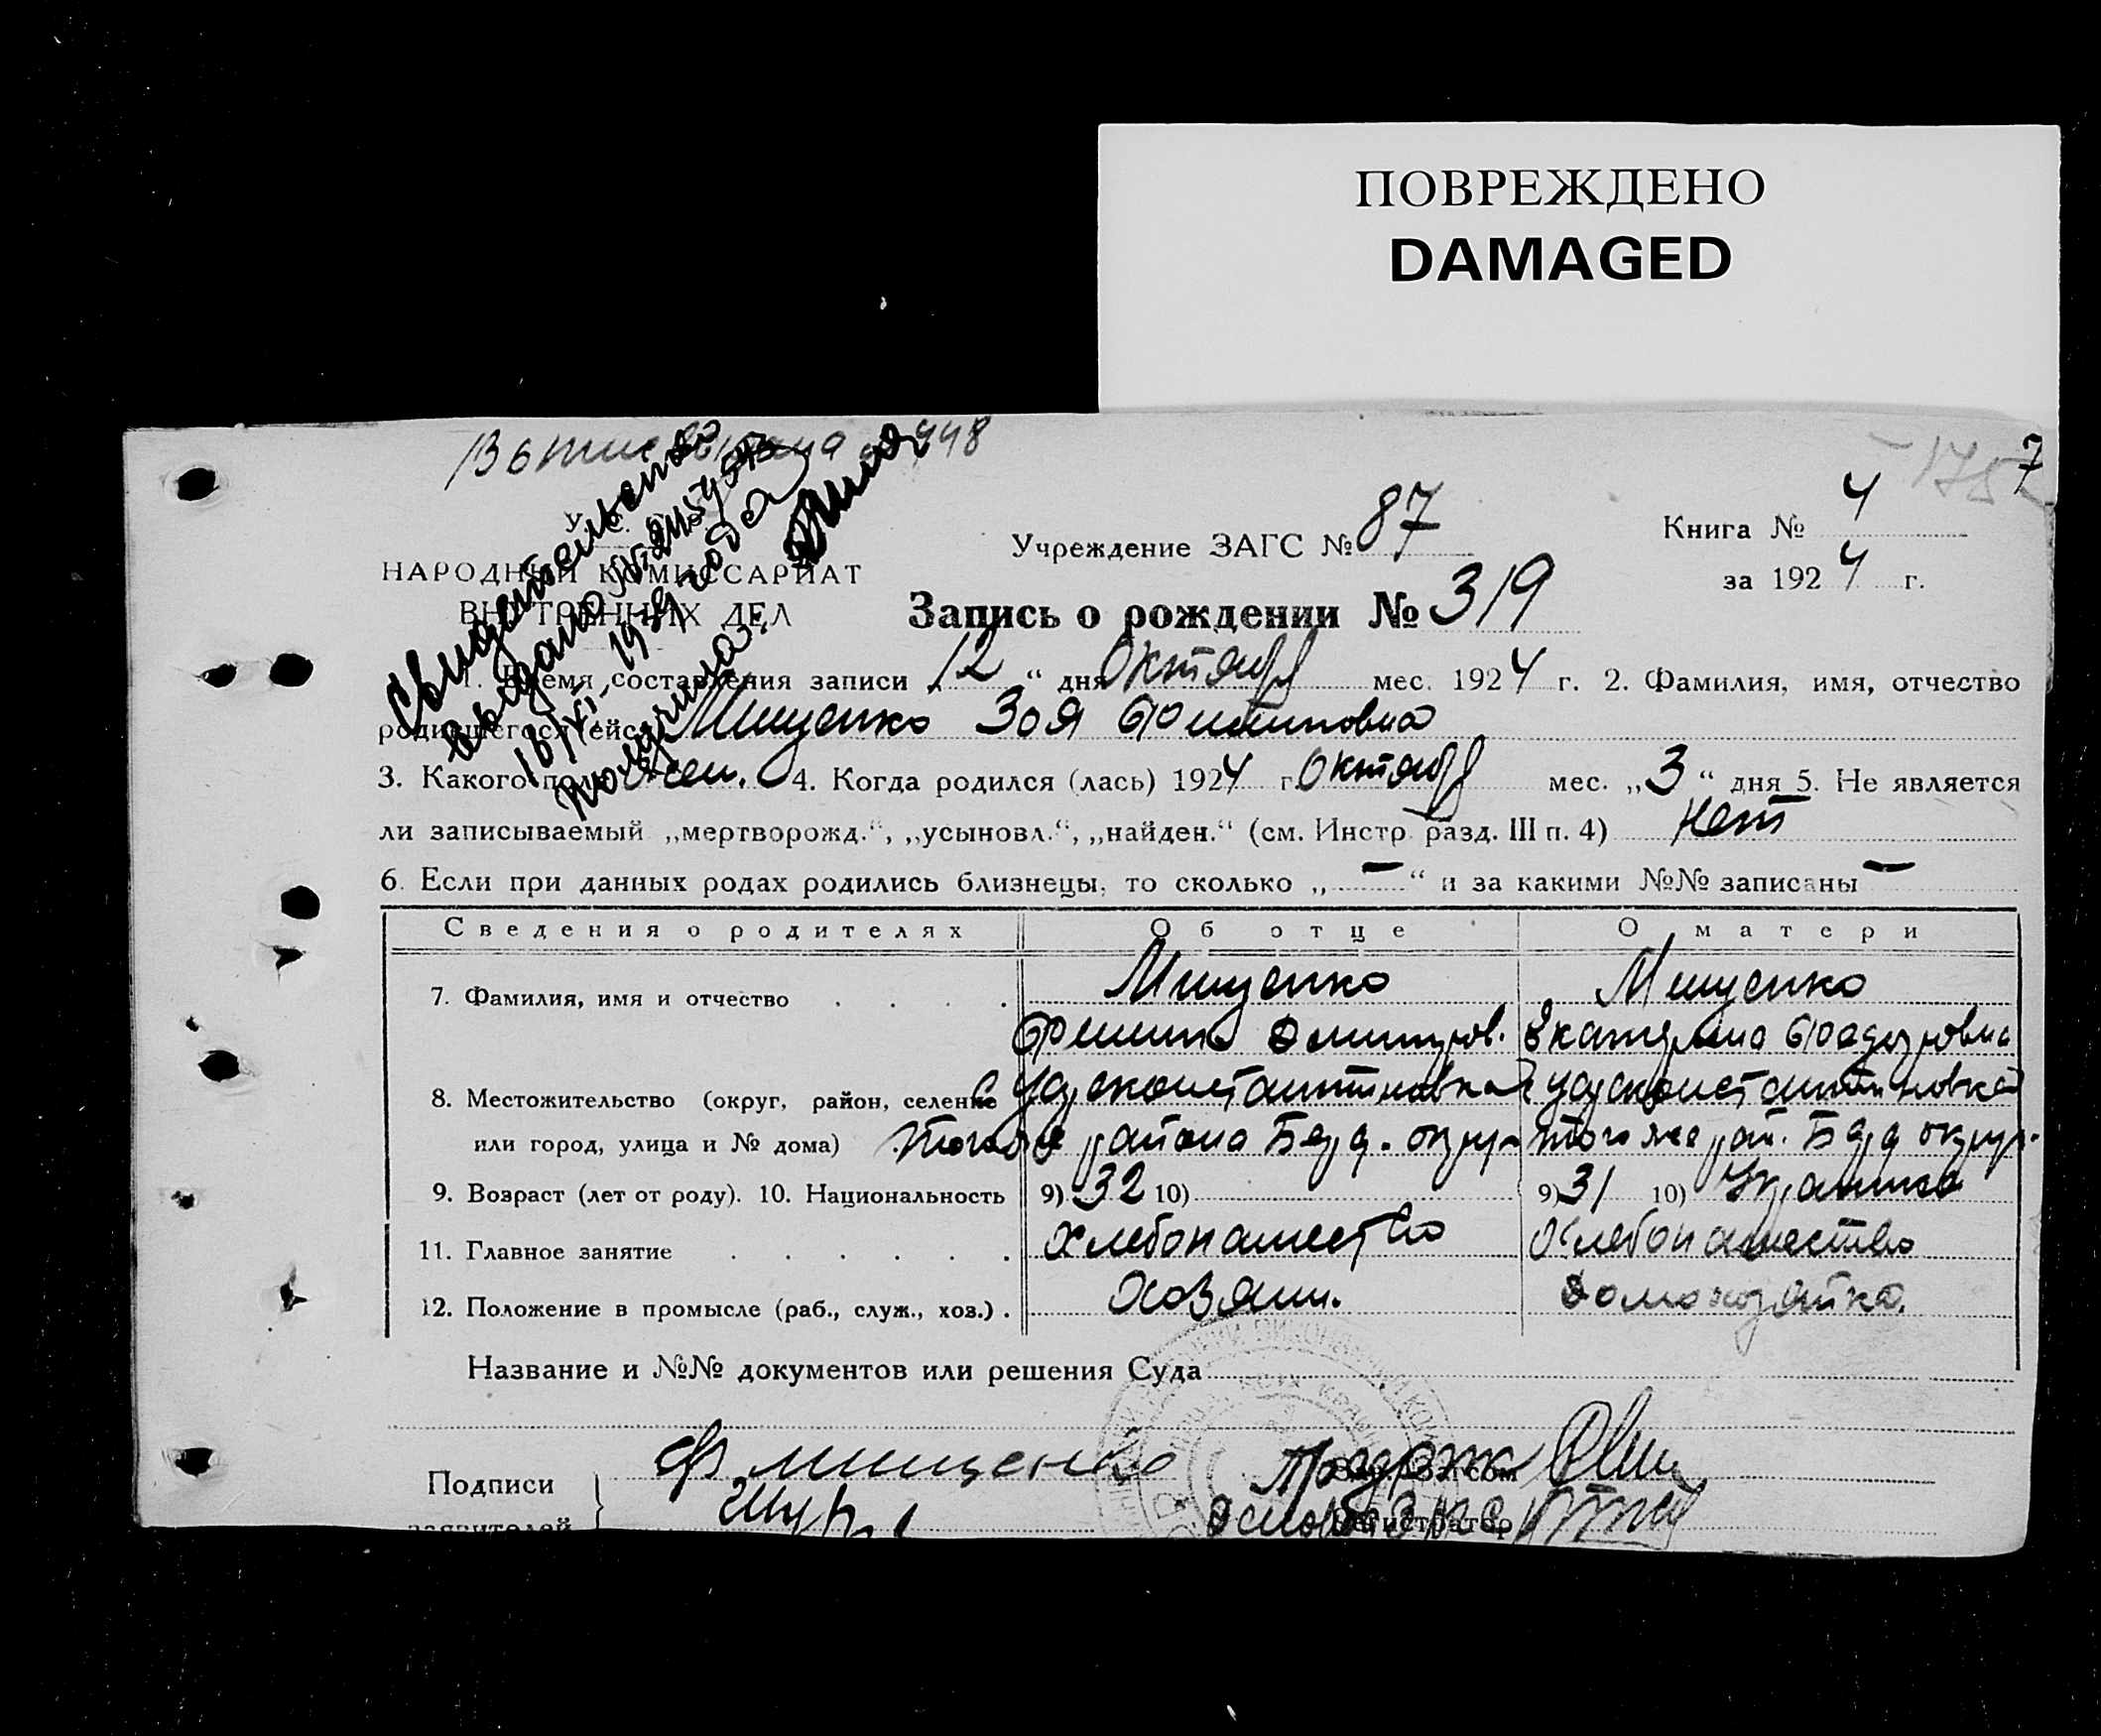 ПОВРЕЖДЕНО
DAMAGED
7
Свидетельство
выдано
16/XI- 1939 года
получила:
У.С.
НАРОДНЫЙ КОМИССАРИАТ
ВНУТРЕННИХ ДЕЛ
Учреждение ЗАГС № 87
Книга № 4
за 1924 г.
Запись о рождении № 319
1. Время составления записи „12“ дня Октября мес. 1924 г. 2. Фамилия, имя, отчество
родившегося (ейся) Мищенко Зоя Филиповна
3. Какого пола жен. 4. Когда родился (лась) 1924 г. Октября мес. „3“ дня 5. Не является
ли записываемый „мертворожд.“, „усыновл.“, „найден.“ (см. Инстр. разд. III п. 4) нет
6. Если при данных родах родились близнецы, то сколько „—“ и за какими №№ записаны —
Сведения о родителях Об отце О матери
7. Фамилия, имя и отчество Мищенко Мищенко
Филипп Дмитров. Екатерина Федоровна
8. Местожительство (округ, район, селение
или город, улица и № дома) того же района Берд. округ. того же рай. Берд округ.
9. Возраст (лет от роду). 10. Национальность 9) 32 10) 9) 31 10) Украинка
11. Главное занятие Хлебопашество Хлебопашество
12. Положение в промысле (раб., служ., хоз.) Хозяин. Домохозяйка.
Название и №№ документов или решения Суда
Подписи Ф Мищенко
заявителей
Регистратор